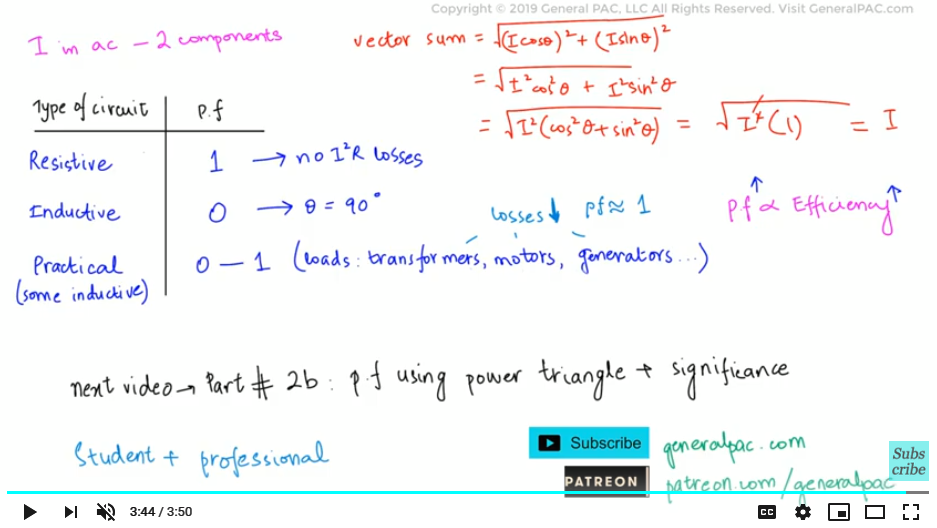 Copyright © 2019 General PAC, LLC All Rights Reserved. Visit GeneralPAC.com
I in ac – 2 components
vector sum = √(Icosθ)² + (Isinθ)²
= √I²cos²θ + I²sin²θ
= √I²(cos²θ + sin²θ) = √I²(1) = I
Type of circuit p.f
Resistive 1 → no I²R losses
Inductive 0 → θ = 90°
losses↓ pf ≈ 1
Pf↑ ∝ Efficiency↑
Practical 0 – 1 (loads: transformers, motors, generators...)
(some inductive)
next video → Part # 2b : p.f using power triangle + significance
Student + professional
Subscribe
generalpac.com
PATREON
patreon.com/generalpac
Subs
cribe
3:44 / 3:50
CC